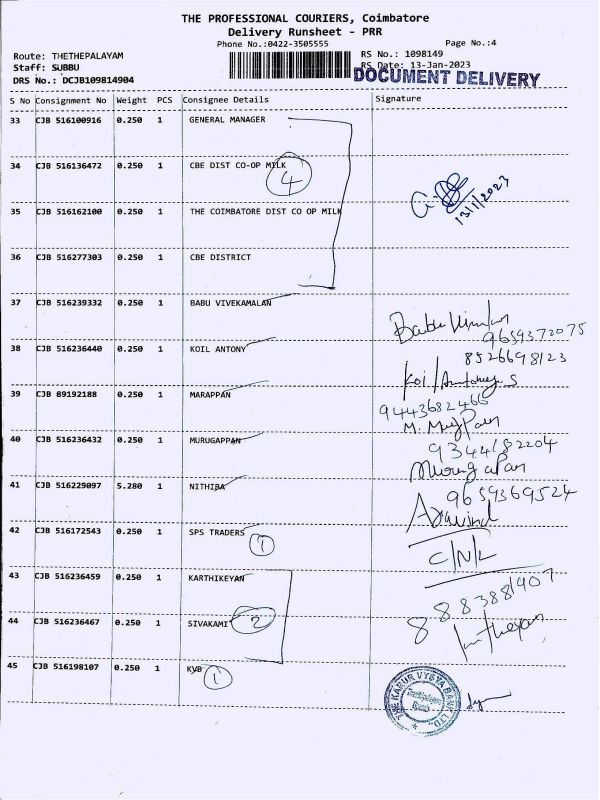 THE PROFESSIONAL COURIERS, Coimbatore
Delivery Runsheet - PRR
Phone No.:0422-3505555 Page No.:4
Route: THETHEPALAYAM RS No.: 1098149
Staff: SUBBU RS Date: 13-Jan-2023
DOCUMENT DELIVERY
DRS No.: DCJB109814904
S No Consignment No Weight PCS Consignee Details Signature
33 CJB 516100916 0.250 1 GENERAL MANAGER
34 CJB 516136472 0.250 1 CBE DIST CO-OP MILK
4
13/1/2023
35 CJB 516162100 0.250 1 THE COIMBATORE DIST CO OP MILK
36 CJB 516277303 0.250 1 CBE DISTRICT
37 CJB 516239332 0.250 1 BABU VIVEKAMALAN
9659372075
38 CJB 516236440 0.250 1 KOIL ANTONY
8526698123
Koil Antony S
39 CJB 89192188 0.250 1 MARAPPAN
9443682466
40 CJB 516236432 0.250 1 MURUGAPPAN
9344182204
Murugapan
41 CJB 516229097 5.280 1 NITHIBA
9659369524
Aravind
42 CJB 516172543 0.250 1 SPS TRADERS
1
C/N/L
43 CJB 516236459 0.250 1 KARTHIKEYAN
888381907
44 CJB 516236467 0.250 1 SIVAKAMI 2
45 CJB 516198107 0.250 1 KVB 1
THE KARUR VYSYA BANK LTD.